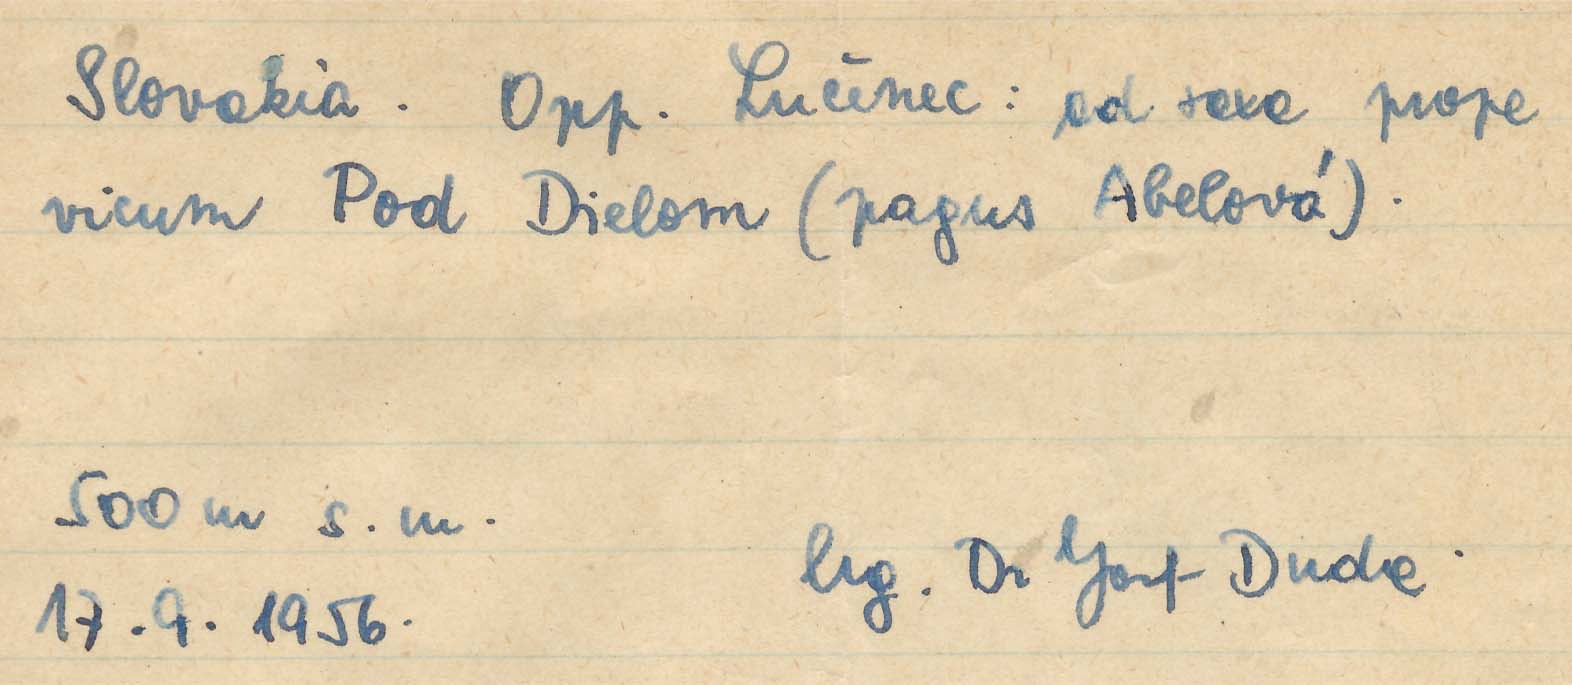 Slovakia. Opp. Lučenec: ad saxa prope
vicum Pod Dielom (pagus Abelová).
500 m s. m.
17. 9. 1956.
Ing. Dr Josef Duda